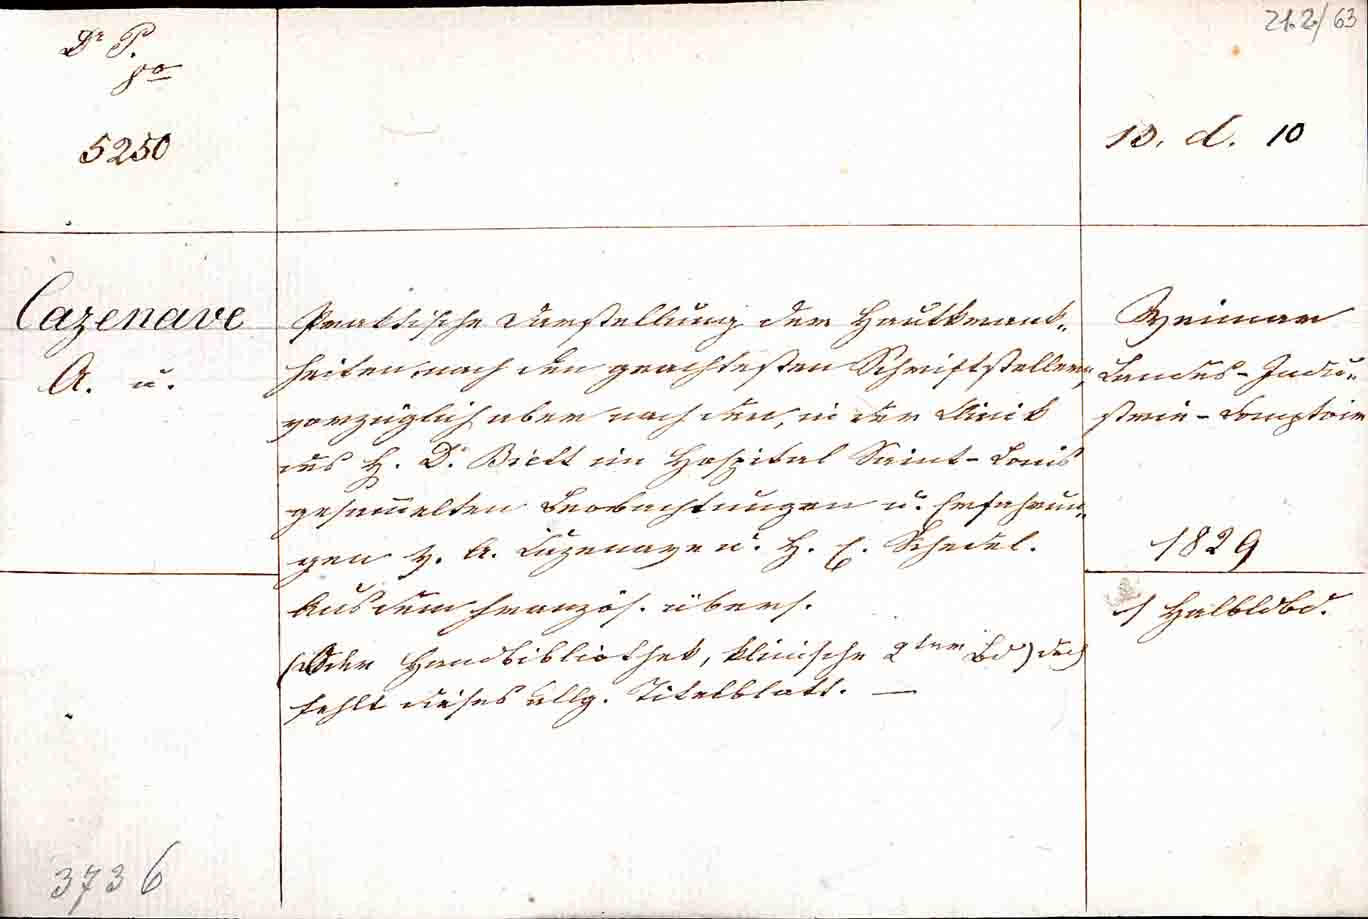 21.2/63
Dr P.
8o
5250
10. d. 10
Cazenave
A. u.
Praktische Darstellung der Hautkrank-
heiten nach den geachtesten Schriftstellern,
vorzüglich aber nach den, in der Clinik
des H. Dr Biett im Hospital Saint-Louis
gesammelten Beobachtungen u. Erfahrun-
gen v. A. Cazenave u. H. E. Schedel.
Aus dem Französ. übers.
(Oder Handbibliothek, klinische 2ter Bd) doch
fehlt dieses allg. Titelblatt. —
Weimar
Landes-Indu-
strie-Comptoir
1829
1 Halbldbd.
3736